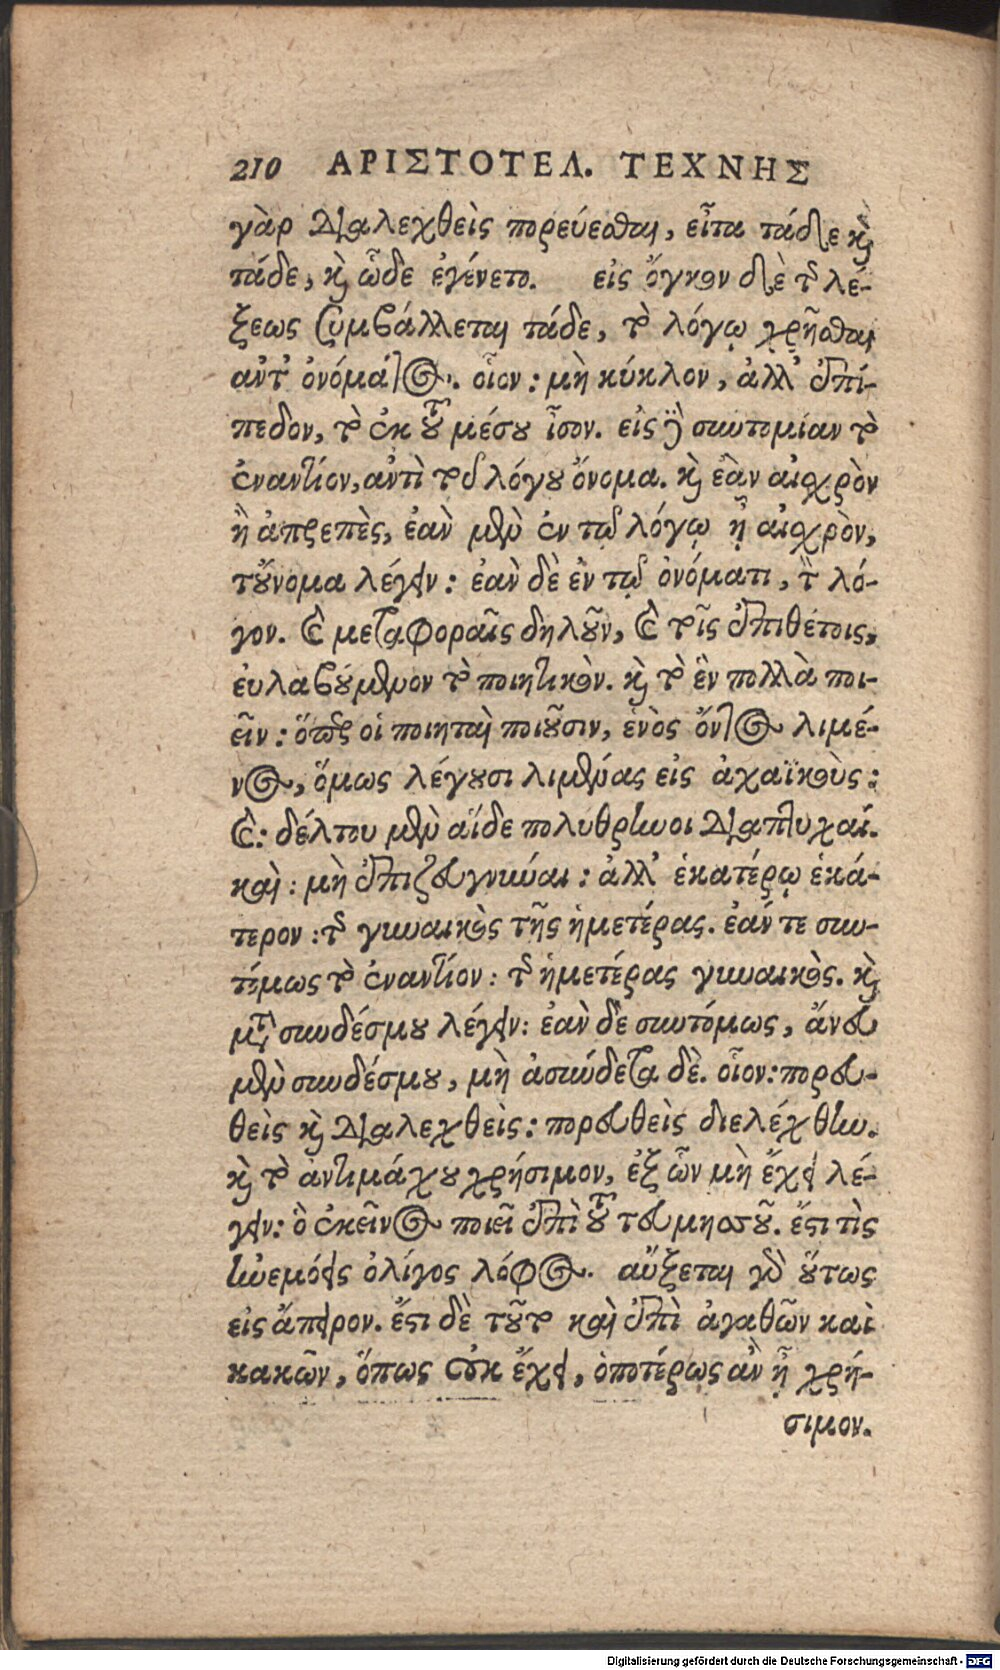 210 ΑΡΙΣΤΟΤΕΛ. ΤΕΧΝΗΣ
γὰρ διαλεχθεὶς πορεύεσθαι, εἶτα τάδε καὶ
τάδε, καὶ ὧδε ἐγένετο. εἰς ὄγκον δὲ τῆς λέ-
ξεως συμβάλλεται τάδε, τὸ λόγῳ χρῆσθαι
ἀντ' ὀνόματος. οἷον: μὴ κύκλον, ἀλλ' ἐπί-
πεδον, τὸ ἐκ τοῦ μέσου ἶσον. εἰς δὲ συντομίαν τὸ
ἐναντίον, ἀντὶ τοῦ λόγου ὄνομα. καὶ ἐὰν αἰσχρὸν
ἢ ἀπρεπὲς, ἐὰν μὲν ἐν τῷ λόγῳ ᾖ αἰσχρὸν,
τοὔνομα λέγειν: ἐὰν δὲ ἐν τῷ ὀνόματι, τὸν λό-
γον. καὶ μεταφοραῖς δηλοῦν, καὶ τοῖς ἐπιθέτοις,
εὐλαβούμενον τὸ ποιητικὸν. καὶ τὸ ἓν πολλὰ ποι-
εῖν: ὅπερ οἱ ποιηταὶ ποιοῦσιν, ἑνὸς ὄντος λιμέ-
νος, ὅμως λέγουσι λιμένας εἰς ἀχαϊκοὺς:
καὶ: δέλτου μὲν αἵδε πολύθρηνοι διαπτυχαί.
καὶ: μὴ ἐπιζευγνύναι: ἀλλ' ἑκατέρῳ ἑκά-
τερον: τῆς γυναικὸς τῆς ἡμετέρας. ἐάν τε συν-
τόμως τὸ ἐναντίον: τῆς ἡμετέρας γυναικὸς. καὶ
μετὰ συνδέσμου λέγειν: ἐὰν δὲ συντόμως, ἄνευ
μὲν συνδέσμου, μὴ ἀσύνδετα δὲ. οἷον: πορευ-
θεὶς καὶ διαλεχθεὶς: πορευθεὶς διελέχθην.
καὶ τὸ ἀντιμάχου χρήσιμον, ἐξ ὧν μὴ ἔχει λέ-
γειν: ὃ ἐκεῖνος ποιεῖ ἐπὶ τοῦ τευμησσοῦ. ἔστι τὶς
ἠνεμόεις ὀλίγος λόφος. αὔξεται γὰρ οὕτως
εἰς ἄπειρον. ἔστι δὲ τοῦτο καὶ ἐπὶ ἀγαθῶν καὶ
κακῶν, ὅπως οὐκ ἔχει, ὁποτέρως ἂν ᾖ χρή-
σιμον.
Digitalisierung gefördert durch die Deutsche Forschungsgemeinschaft - DFG